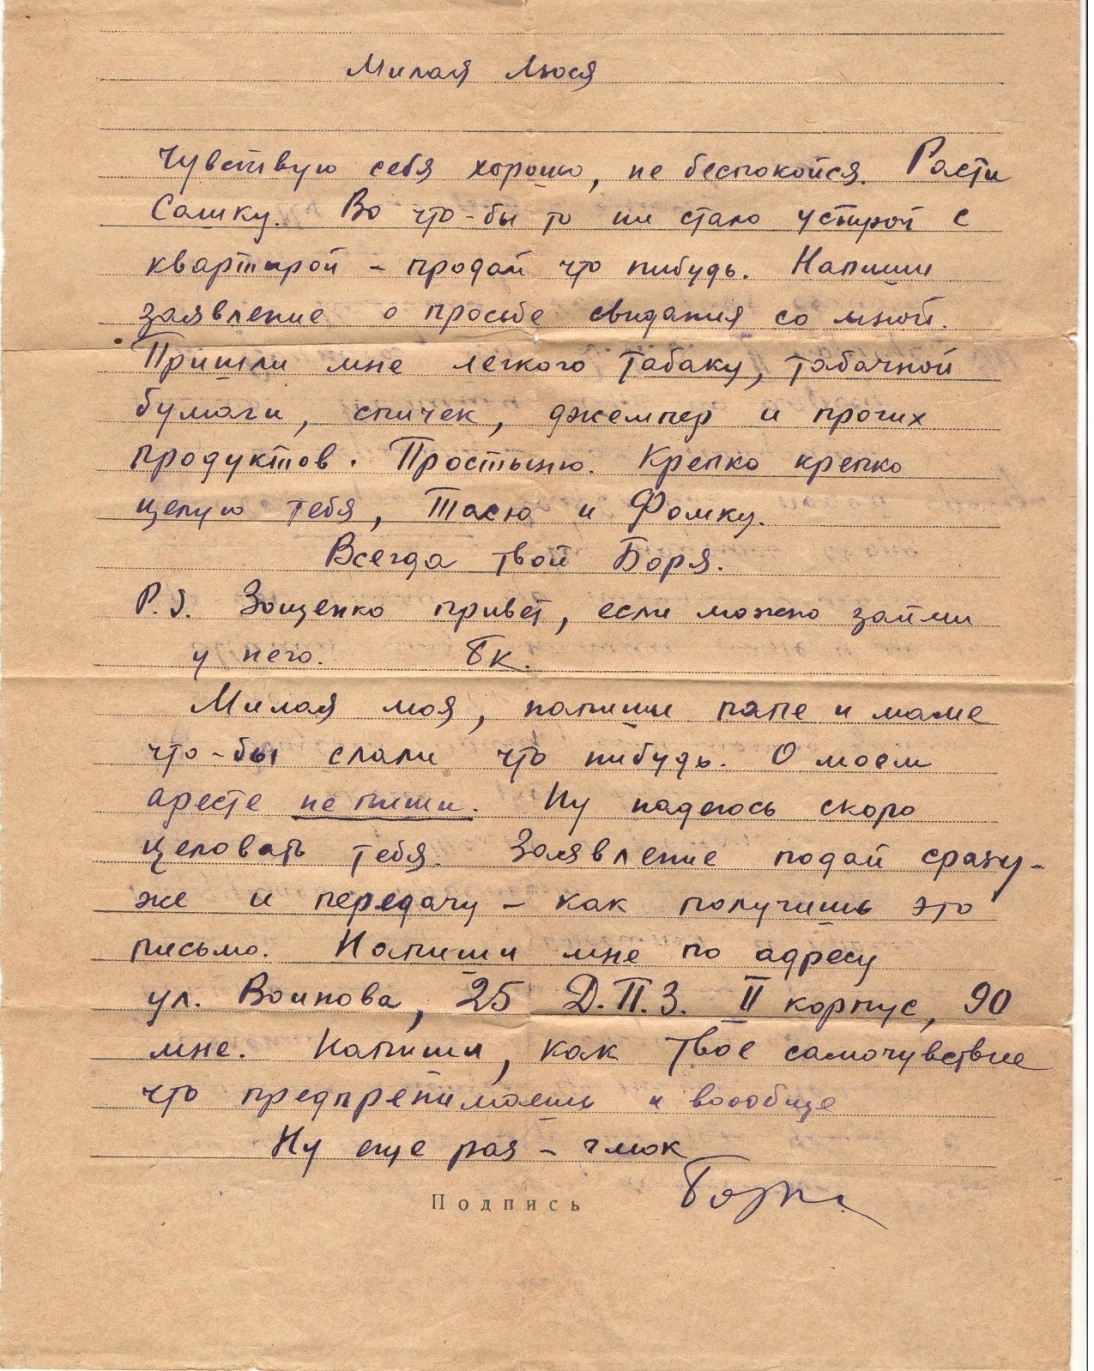 Милая Люся
Чувствую себя хорошо, не беспокойся. Расти
Сашку. Во что-бы то ни стало устрой с
квартирой – продай что нибудь. Напиши
заявление о просьбе свидания со мной.
Пришли мне легкого табаку, табачной
бумаги, спичек, джемпер и прочих
продуктов. Простыню. Крепко крепко
целую тебя, Тасю и Фомку.
Всегда твой Боря.
P.S. Зощенко привет, если можно займи
у него. БК.
Милая моя, напиши папе и маме
что-бы слали что нибудь. О моем
аресте не пиши. Ну надеюсь скоро
целовать тебя. Заявление подай сразу-
же и передачу – как получишь это
письмо. Напиши мне по адресу
ул. Воинова, 25 Д.П.З. II корпус, 90
мне. Напиши, как твое самочувствие
что предпренимаешь и воообще
Ну еще раз – чмок
Подпись Боря.